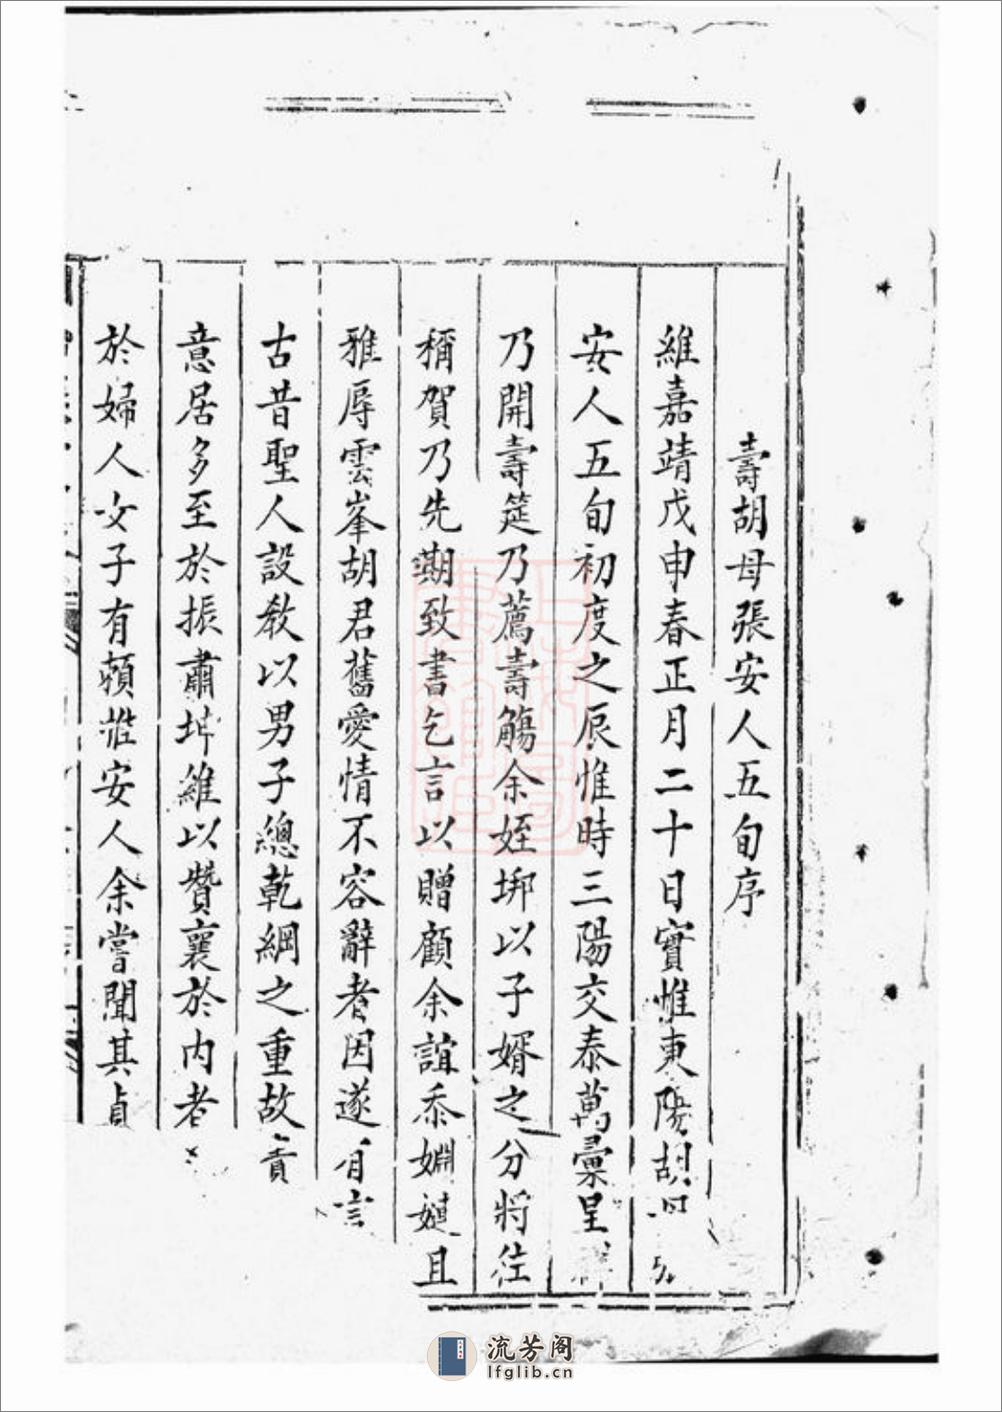 壽胡母張安人五旬序
維嘉靖戊申春正月二十日實惟東陽胡
安人五旬初度之辰惟時三陽交泰萬彙呈祥
乃開壽筵乃薦壽觴余姪垹以子婿之分將往
稱賀乃先期致書乞言以贈顧余誼忝姻嫤且
雅辱雲峯胡君舊愛情不容辭者因遂有言
古昔聖人設教以男子總乾綱之重故責
意居多至於振肅坤維以贊襄於内者
於婦人女子有賴惟安人余嘗聞其貞
流芳阁
lfglib.cn